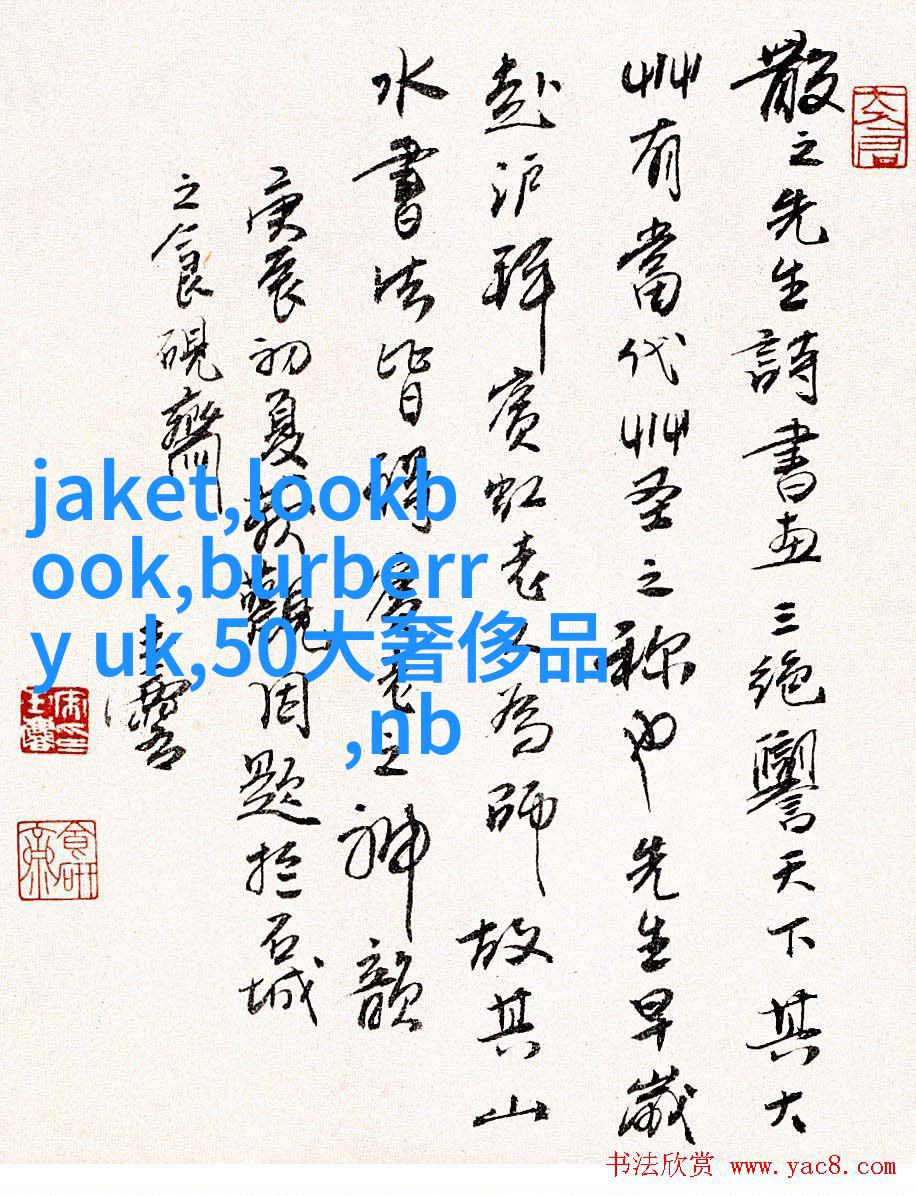 散之先生詩書画三絶譽天下其大
艸有當代艸圣之称也先生早歲
赴沪拜賓虹老人為師故其山
水書法皆得賓老之神韻
庚辰初夏敬觀因題於石城
之食硯齋
jaket,lookb
ook,burberr
y uk,50大奢侈品
,nb
书法欣赏 www.yac8.com